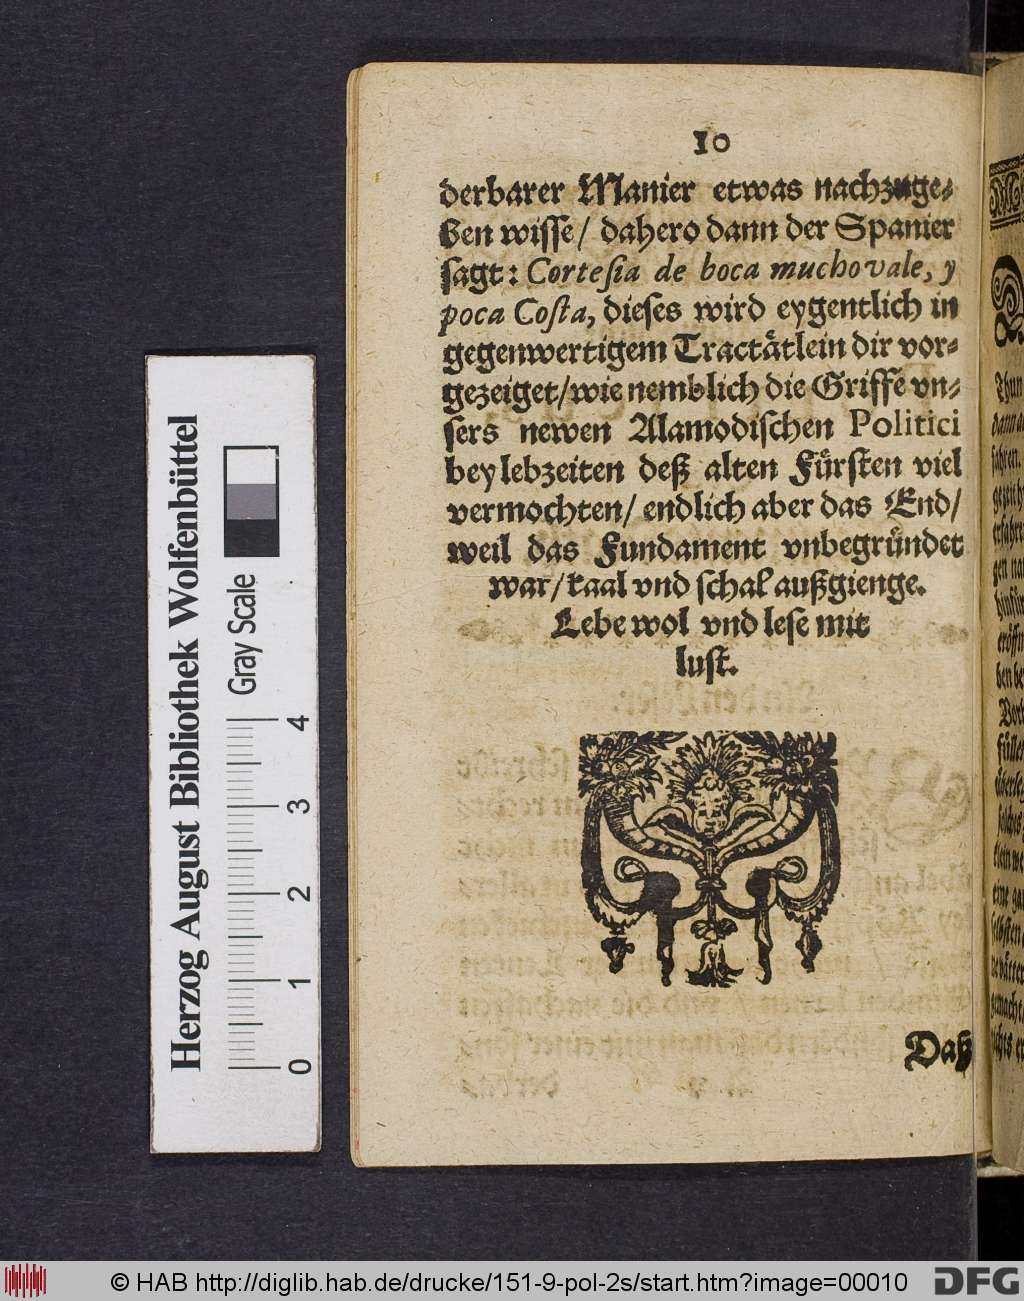 10
derbarer Manier etwas nachzuge-
ben wisse / dahero dann der Spanier
sagt: Cortesia de boca mucho vale, y
poca Costa, dieses wird eygentlich in
gegenwertigem Tractätlein dir vor-
gezeiget / wie nemblich die Griffe vn-
sers newen Alamodischen Politici
bey lebzeiten deß alten Fürsten viel
vermochten / endlich aber das End /
weil das Fundament vnbegründet
war / kaal vnd schal außgienge.
Lebe wol vnd lese mit
lust.
Daß
Herzog August Bibliothek Wolfenbüttel
Gray Scale
0 1 2 3 4
© HAB http://diglib.hab.de/drucke/151-9-pol-2s/start.htm?image=00010
DFG